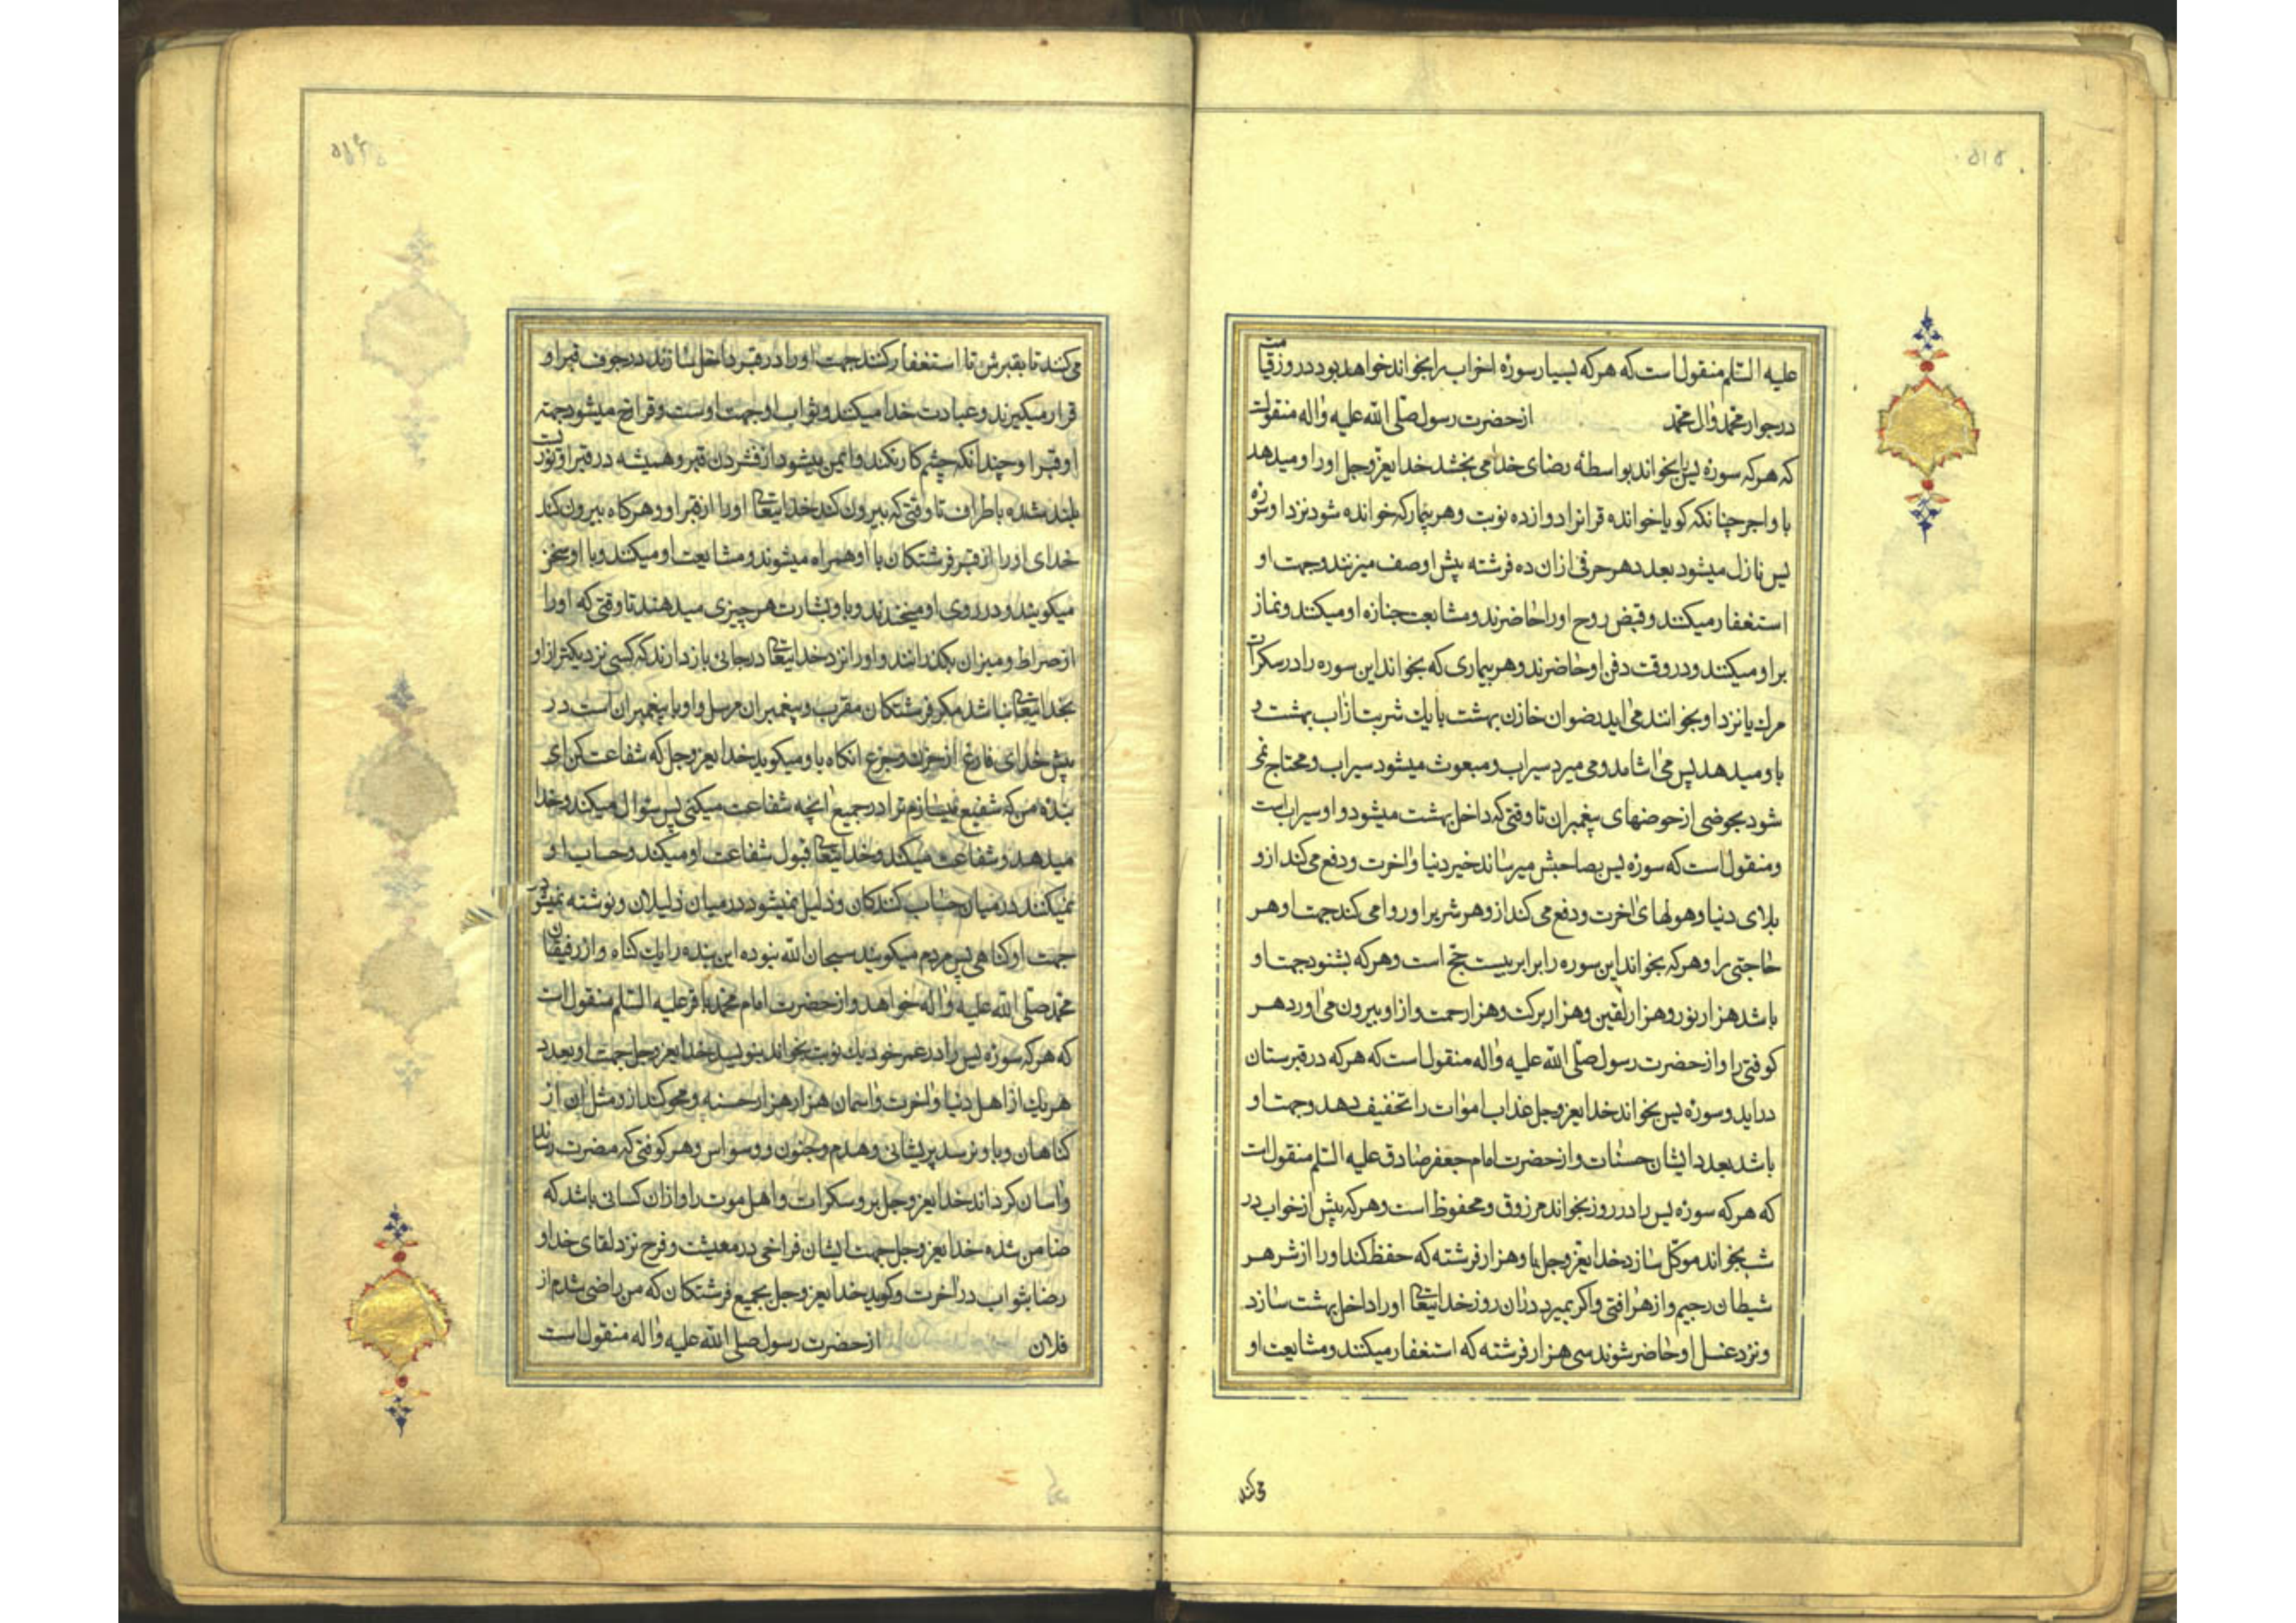 ۵۱۵
علیه السلم منقول است که هر که بسیار سورۀ احزاب را بخواند خواهد بود در روز قیامت
در جوار محمد و ال محمد از حضرت رسول صلی الله علیه و اله منقولست
که هر که سورۀ یس را بخواند بواسطۀ رضای خدا می بخشد خدایعزوجل اورا و میدهد
باو اجر چنانکه کویا خوانده قرانرا دوازده نوبت و هر بیمار که خوانده شود نزد او سورۀ
یس نازل میشود بعدد هر حرفی ازان ده فرشته پیش او صف میزنند و جهت او
استغفار میکنند و قبض روح اورا حاضرند و مشایعت جنازه او میکنند و نماز
بر او میکنند و در وقت دفن او حاضرند و هر بیماری که بخواند این سوره را در سکرات
مرك یا نزد او بخوانند می اید رضوان خازن بهشت با یك شربت از اب بهشت و
باو میدهد پس می اشامد و می میرد سیراب و مبعوث میشود سیراب و محتاج نمی
شود بحوضی از حوضهای پیغمبران تا وقتی که داخل بهشت میشود و او سیراب است
و منقول است که سورۀ یس بصاحبش میرساند خیر دنیا و اخرت و دفع می کند ازو
بلای دنیا و هولهای اخرت و دفع می کند ازو هر شریرا و روا می کند جهت او هر
حاجتی را و هر که بخواند این سوره را برابر بیست حج است و هر که بشنود جهت او
باشد هزار نور و هزار یقین و هزار برکت و هزار رحمت و ازاو بیرون می اورد هر
کوفتی را و از حضرت رسول صلی الله علیه و اله منقول است که هر که در قبرستان
دراید و سورۀ یس بخواند خدایعزوجل عذاب اموات را تخفیف دهد و جهت او
باشد بعدد ایشان حسنات و از حضرت امام جعفر صادق علیه السلم منقول است
که هر که سورۀ یس را در روز بخواند مرزوق و محفوظ است و هر که پیش از خواب در
شب بخواند موکل سازد خدایعزوجل باو هزار فرشته که حفظ کند اورا از شر هر
شیطان رجیم و از هر افتی و اکر بمیرد دران روز خدایتعالی اورا داخل بهشت سازد
و نزد غسل او حاضر شوند سی هزار فرشته که استغفار میکنند و مشایعت او
می کند
می کنند تا بقبرش تا استغفار کنند جهت او را در قبر داخل سازند در جوف قبر او
قرار میکیرند و عبادت خدا میکند و ثواب او جهت اوست و فراخ میشود جهته
او قبر او چندانکه چشم کار نکند و ایمن میشود از فشردن قبر و همیشه در قبر او نوریست
بلند شده باطراف تا وقتی که بیرون کند خدایتعالی اورا از قبر او و هر کاه بیرون کند
خدای اورا از قبر فرشتکان با او همراه میشوند و مشایعت او میکنند و با او سخن
میکویند و در روی او میخندند و باو بشارت هر چیزی میدهند تا وقتی که اورا
از صراط و میزان بکذرانند و اورا نزد خدایتعالی درجائی بازدارند که کسی نزدیکتر از او
بخدایتعالی نباشد مکر فرشتکان مقرب و پیغمبران مرسل و او با پیغمبران است در
پیش خدای فارغ از حزن و جزع انکاه باو میکوید خدایعزوجل که شفاعت کن ای
بندۀ من که شفیع میسازم ترا در جمیع انچه شفاعت میکنی پس سوال میکند و خدا
میدهد و شفاعت میکند و خدایتعالی قبول شفاعت او میکند و حساب او
نمیکنند در میان حساب کنندکان و ذلیل نمیشود در میان ذلیلان و نوشته نمیشود
جهت او کناهی پس مردم میکویند سبحان الله نبوده این بنده را یك کناه و از رفیقان
محمد صلی الله علیه و اله خواهد و از حضرت امام محمد باقر علیه السلم منقول است
که هر که سورۀ یس را در عمر خود یك نوبت بخواند بنویسد خدایعزوجل جهت او بعدد
هر یك از اهل دنیا و اخرت و اسمان هزار هزار حسنه و محو کند ازو مثل ان از
کناهان و باو نرسد پریشانی و هدم و جنون و وسواس و هر کوفتی که مضرت رساند
و اسان کرداند خدایعزوجل برو سکرات و اهل موت را و ازان کسانی باشد که
ضامن شده خدایعزوجل جهت ایشان فراخی در معیشت و فرح نزد لقای خدا و
رضا بثواب در اخرت و کوید خدایعزوجل بجمیع فرشتکان که من راضی شدم از
فلان از حضرت رسول صلی الله علیه و اله منقول است